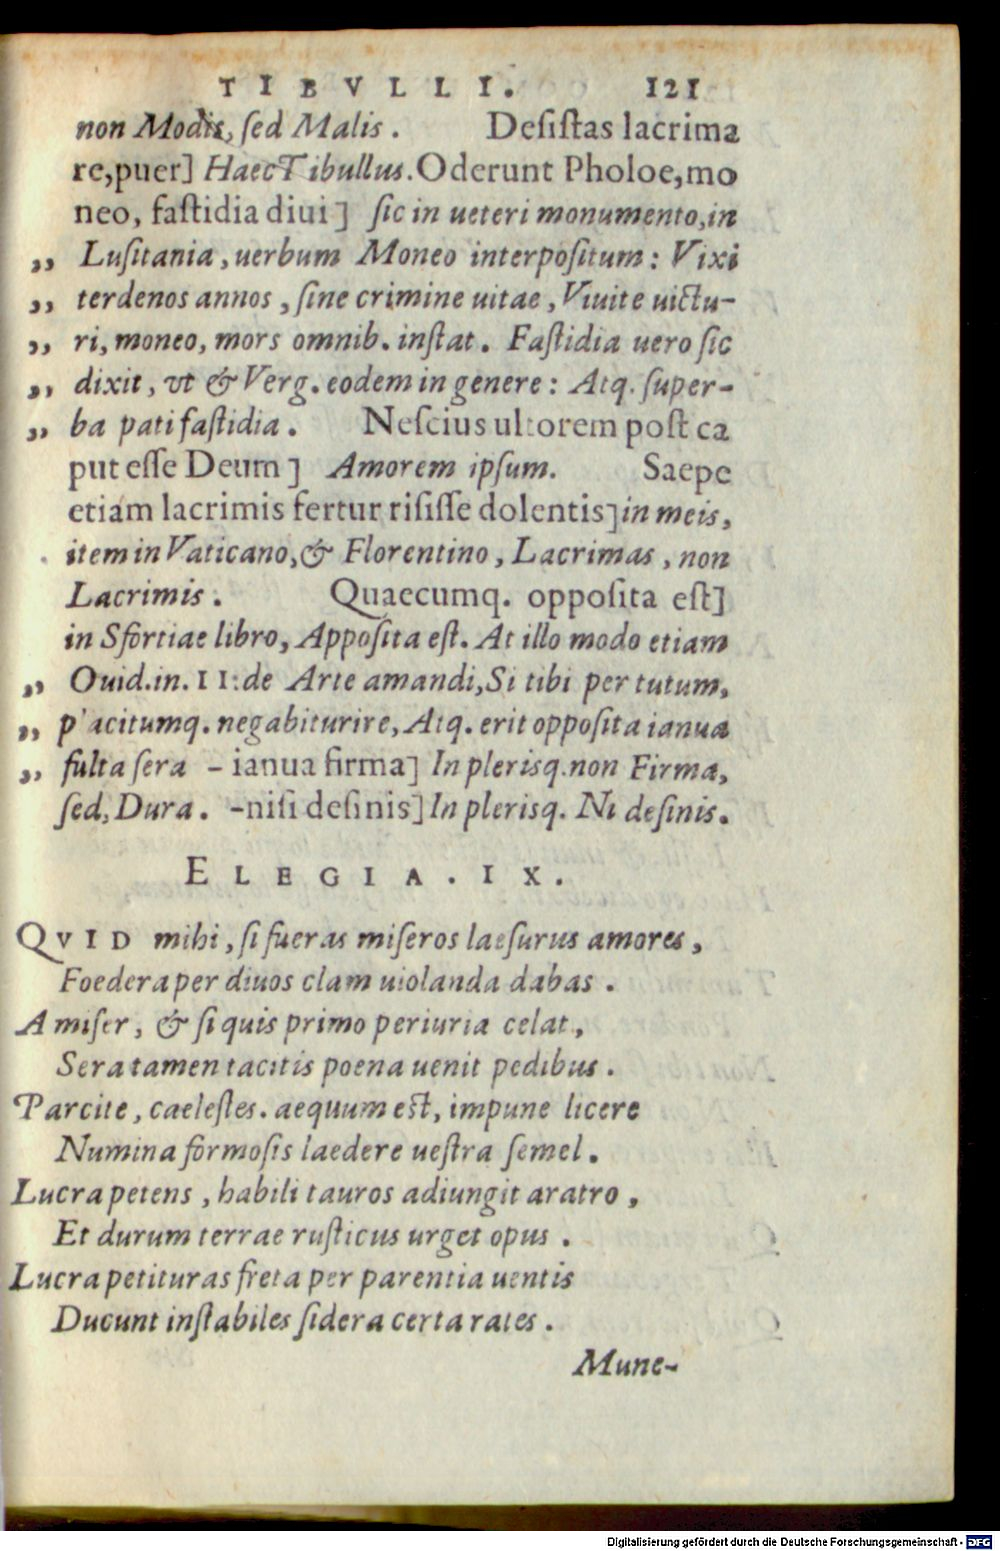 TIBVLLI. 121
non Modis, ſed Malis. Deſiſtas lacrima
re,puer] Haec Tibullus. Oderunt Pholoe,mo
neo, faſtidia diui] ſic in ueteri monumento,in
„ Luſitania, uerbum Moneo interpoſitum: Vixi
„ terdenos annos, ſine crimine uitae, Viuite uictu-
„ ri, moneo, mors omnib. inſtat. Faſtidia uero ſic
„ dixit, ut & Verg. eodem in genere: Atq. ſuper-
„ ba pati faſtidia. Neſcius ultorem poſt ca
put eſſe Deum] Amorem ipſum. Saepe
etiam lacrimis fertur riſiſſe dolentis] in meis,
item in Vaticano, & Florentino, Lacrimas, non
Lacrimis. Quaecumq. oppoſita eſt]
in Sfortiae libro, Appoſita eſt. At illo modo etiam
„ Ouid. in. II. de Arte amandi, Si tibi per tutum,
„ placitumq. negabitur ire, Atq. erit oppoſita ianua
„ fulta ſera - ianua firma] In plerisq. non Firma,
ſed, Dura. -niſi deſinis] In plerisq. Ni deſinis.
ELEGIA. IX.
QVID mihi, ſi fueras miſeros laeſurus amores,
Foedera per diuos clam uiolanda dabas.
A miſer, & ſi quis primo periuria celat,
Sera tamen tacitis poena uenit pedibus.
Parcite, caeleſtes. aequum eſt, impune licere
Numina formoſis laedere ueſtra ſemel.
Lucra petens, habili tauros adiungit aratro,
Et durum terrae ruſticus urget opus.
Lucra petituras freta per parentia uentis
Ducunt inſtabiles ſidera certa rates.
Mune-
Digitalisierung gefördert durch die Deutsche Forschungsgemeinschaft - DFG